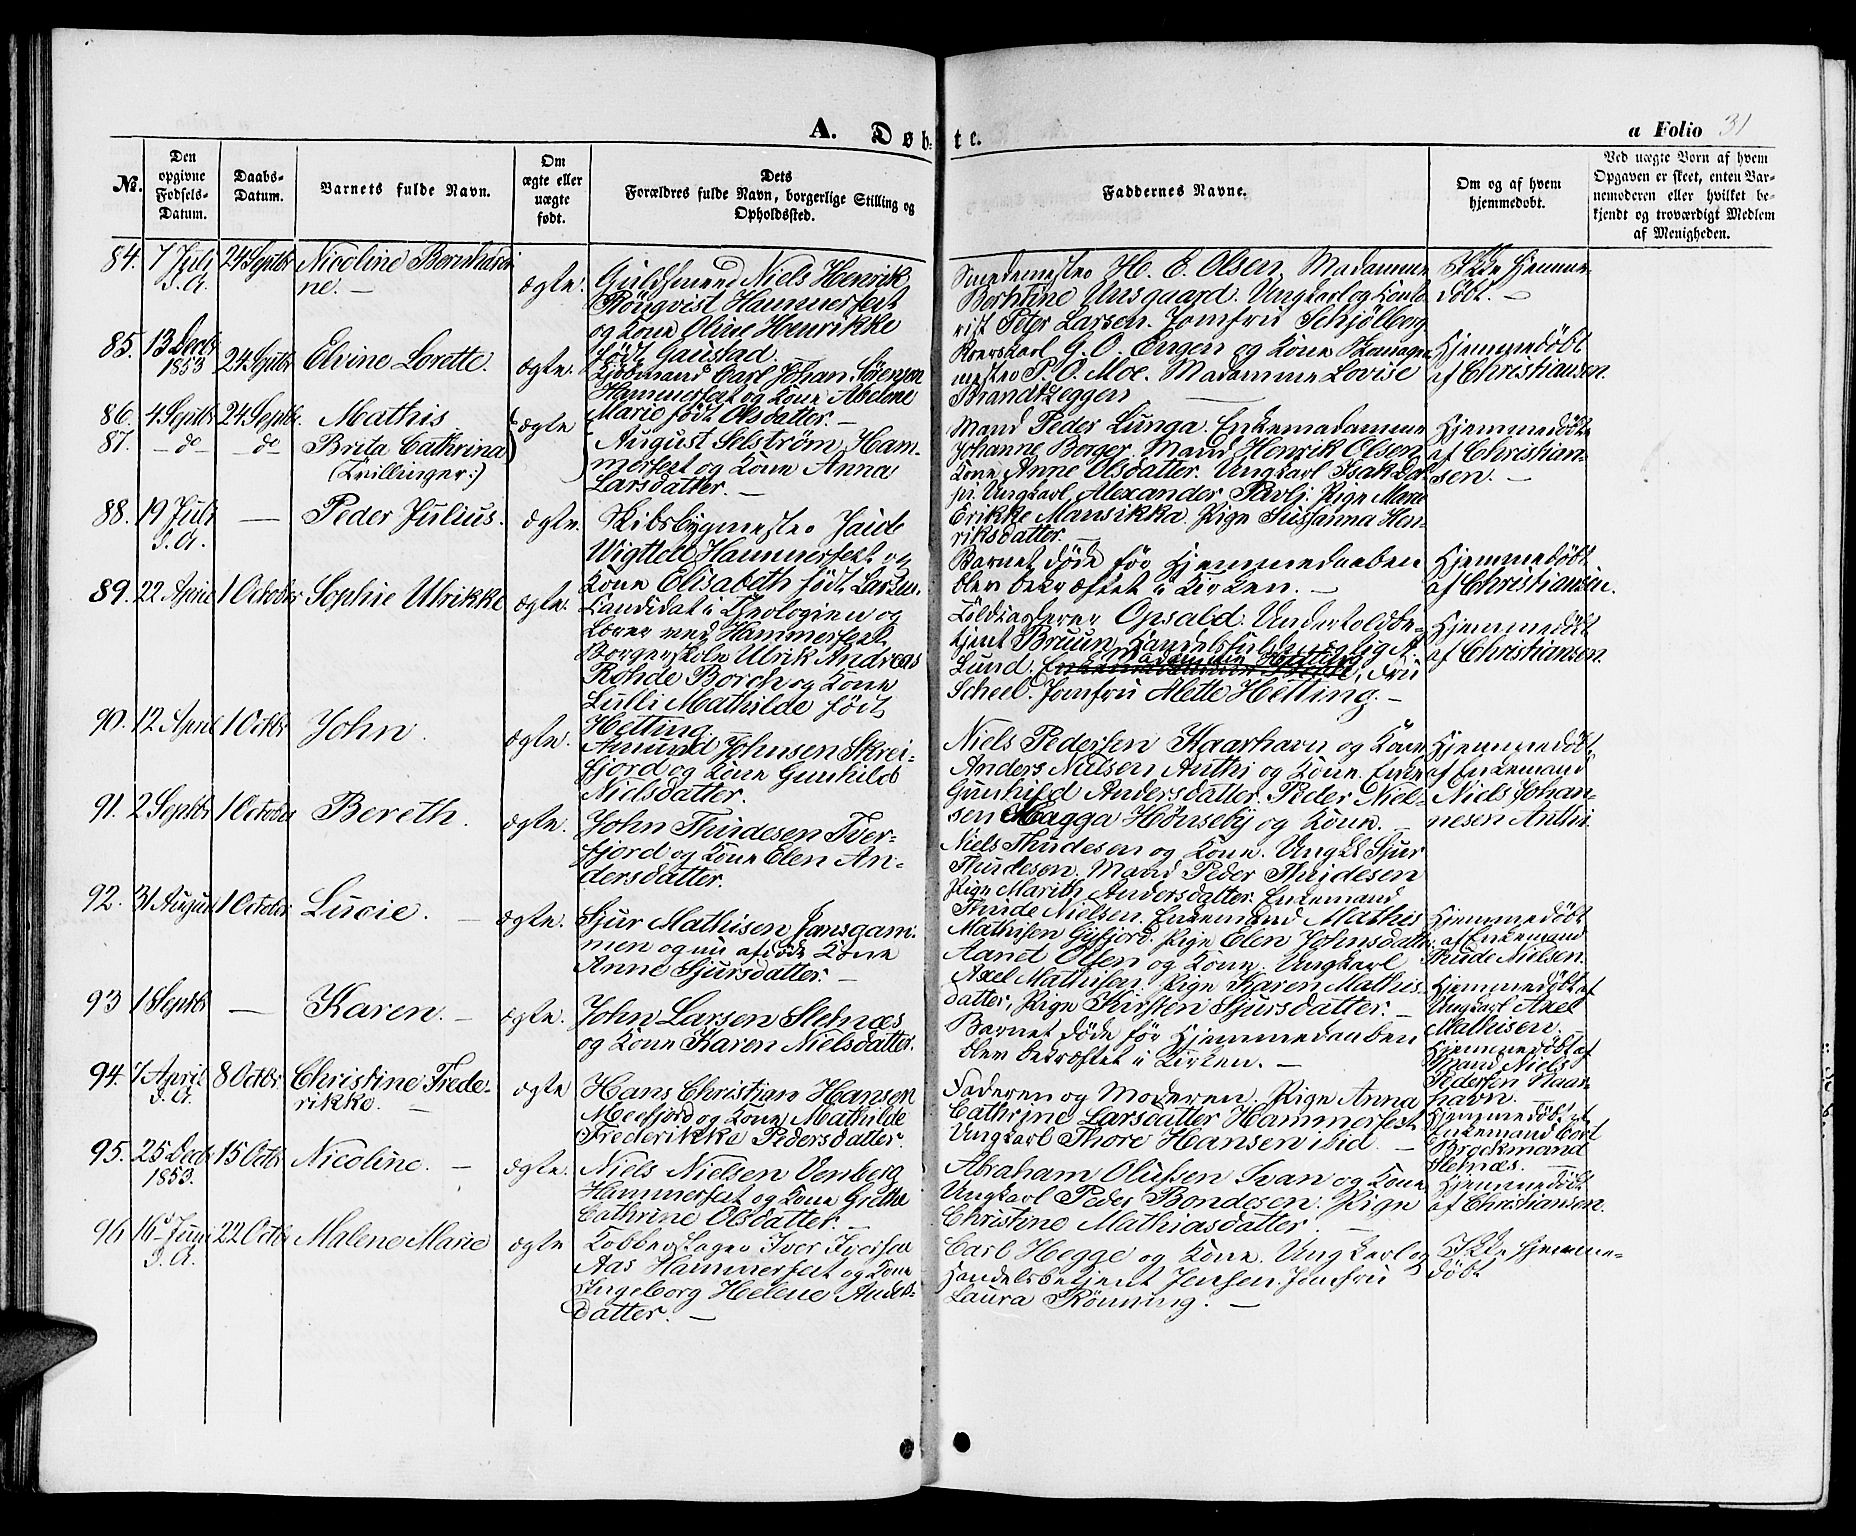 A. Døbte.
a Folio 31
No.
Den opgivne Fødsels-Datum.
Daabs-Datum.
Barnets fulde Navn.
Om ægte eller uægte født.
Dets Forældres fulde Navn, borgerlige Stilling og Opholdssted.
Faddernes Navne.
Om og af hvem hjemmedøbt.
Ved uægte Børn af hvem Opgaven er skeet, enten Barnemoderen eller hvilket bekjendt og troværdigt Medlem af Menigheden.
84. 7 Juli d. A. 24 Septbr Nicoline Bernhardine. — ægte.
Guldsmed Niels Henrik
Rönqvist Hammerfest
og Kone Oline Henrikke
født Gaustad.
Smedemester H. E. Olsen. Madamme
Berntine Unsgaard. Ungkarl og Konto-
rist Peter Larsen. Jomfru Schjölberg
Ikke hjemme-
døbt. —
85. 13 Decbr 1853 24 Septbr Elvine Lorette. ægte.
Kjøbmand Carl Johan Sörensen
Hammerfest og Kone Abeline
Marie født Olsdatter. —
G. O. Engen og Kone
P. O. Moe. Madamme Lovise
Brandtzeggen
Hjemmedöbt
af Christiansen.
86. 4 Septbr 24 Septbr. Mathis
87. — d° — — d° — Brita Cathrina
(Tvillinger:)
ægte
August Selström, Ham-
merfest og Kone Anna
Larsdatter. —
Mand Peder Lunga. Enkemadamme
Johanne Borger. Mand Henrik Olsen
Kone Anne Olsdatter. Ungkarl Isak
Ungkarl Alexander Pavlj. Pige Maria
Erikke Mansikka. Pige Susanna Hen-
riksdatter. —
Hjemmedöbte
af Christian-
sen. —
88. 19 Juli d. A. — Peder Julius. ægte.
Skibsbygmester
Hammerfest og
Kone Elisabeth født Larsen.
Barnet døde før Hjemmedaaben
blev bekræftet i Kirken. —
Hjemmedöbt
af Christiansen.
89. 22 April 1 October Sophie Ulrikke ægte.
Kandidat i Theologien og
Lærer ved Hammerfest
Borgerskole Ulrik Andreas
Rohde Borch og Kone
Lulli Mathilde født
Hetting.
Toldkasserer Opsald. Undertoldbe-
tjent Bruun, Handelsfuldmægtig A.
Lund. Fru
Scheel. Jomfru Alette Hetting. —
Hjemmedöbt
af Christiansen.
90. 12 April 1 Octbr John. ægte.
Amund Johnsen Skrei-
fjord og Kone Gunhild
Nielsdatter.
Niels Pedersen Kaarhavn og Kone
Anders Nielsen Anthi og Kone. Enke
Gunhild Andersdatter. Peder Niel-
sen Magga Hönseby og Kone. —
Hjemmedöbt
af Enkemand
Niels Johan-
nesen Anthi
91. 2 Septbr 1 October Bereth. ægte.
John Thudesen Tver-
fjord og Kone Elen An-
dersdatter.
Niels Thudesen og Kone. Ungkl Sjur
Thudesen. Mand Peder Thudesen
Pige Marith Andersdatter. Enkemand
Thude Nielsen.
Hjemmedöbt
af Enkemand
Thude Nielsen.
92. 31 August 1 October Lucie. — ægte.
Sjur Mathisen Jansgam-
men og nu afdøde Kone
Anne Sjursdatter. —
Enkemand Mathis
Mathisen Gåsfjord. Pige Elen Johnsdatter.
Aanet Olsen og Kone. Ungkarl
Axel Mathisen. Pige Karen Mathis-
datter, Pige Kirsten Sjursdatter. —
Hjemmedöbt af
Ungkarl Axel
Mathisen. —
93 1 Septbr — Karen. — ægte.
John Larsen Stelnæs
og Kone Karen Nielsdatter.
Barnet døde før Hjemmedaaben
blev bekræftet i Kirken. —
Hjemmedöbt af
Mand Niels
Pedersen Kaar-
havn.
94. 7 April d. A. 8 Octbr. Christine Frede-
rikke. — ægte
Hans Christian Hansen
Meefjord og Kone Mathilde
Frederikke Pedersdatter.
Faderen og Moderen. Pige Anna
Cathrine Larsdatter Hammerfest
Ungkarl Thore Hansen ibid. —
Hjemmedöbt af
Enkemand Cort
Brockmand
Stelnæs. —
95. 25 Decbr 1853. 15 Octbr Nicoline. — ægte.
Niels Nielsen Venberg
Hammerfest og Kone Grethe
Cathrine Olsdatter. —
Abraham Olufsen Svan og Kone
Ungkarl Peder Bondesen. Pige
Christine Mathiasdatter. —
Hjemmedöbt
af Christiansen.
96 16 Juni d. A. 22 Octbr Malene Marie ægte
Kobberslager Iver Iversen
Aas Hammerfest og Kone
Ingeborg Helene Anders-
datter. —
Carl Hegge og Kone. Ungkarl og
Handelsbetjent Jensen. Jomfru
Laura Rönning. —
Ikke hjemme-
døbt